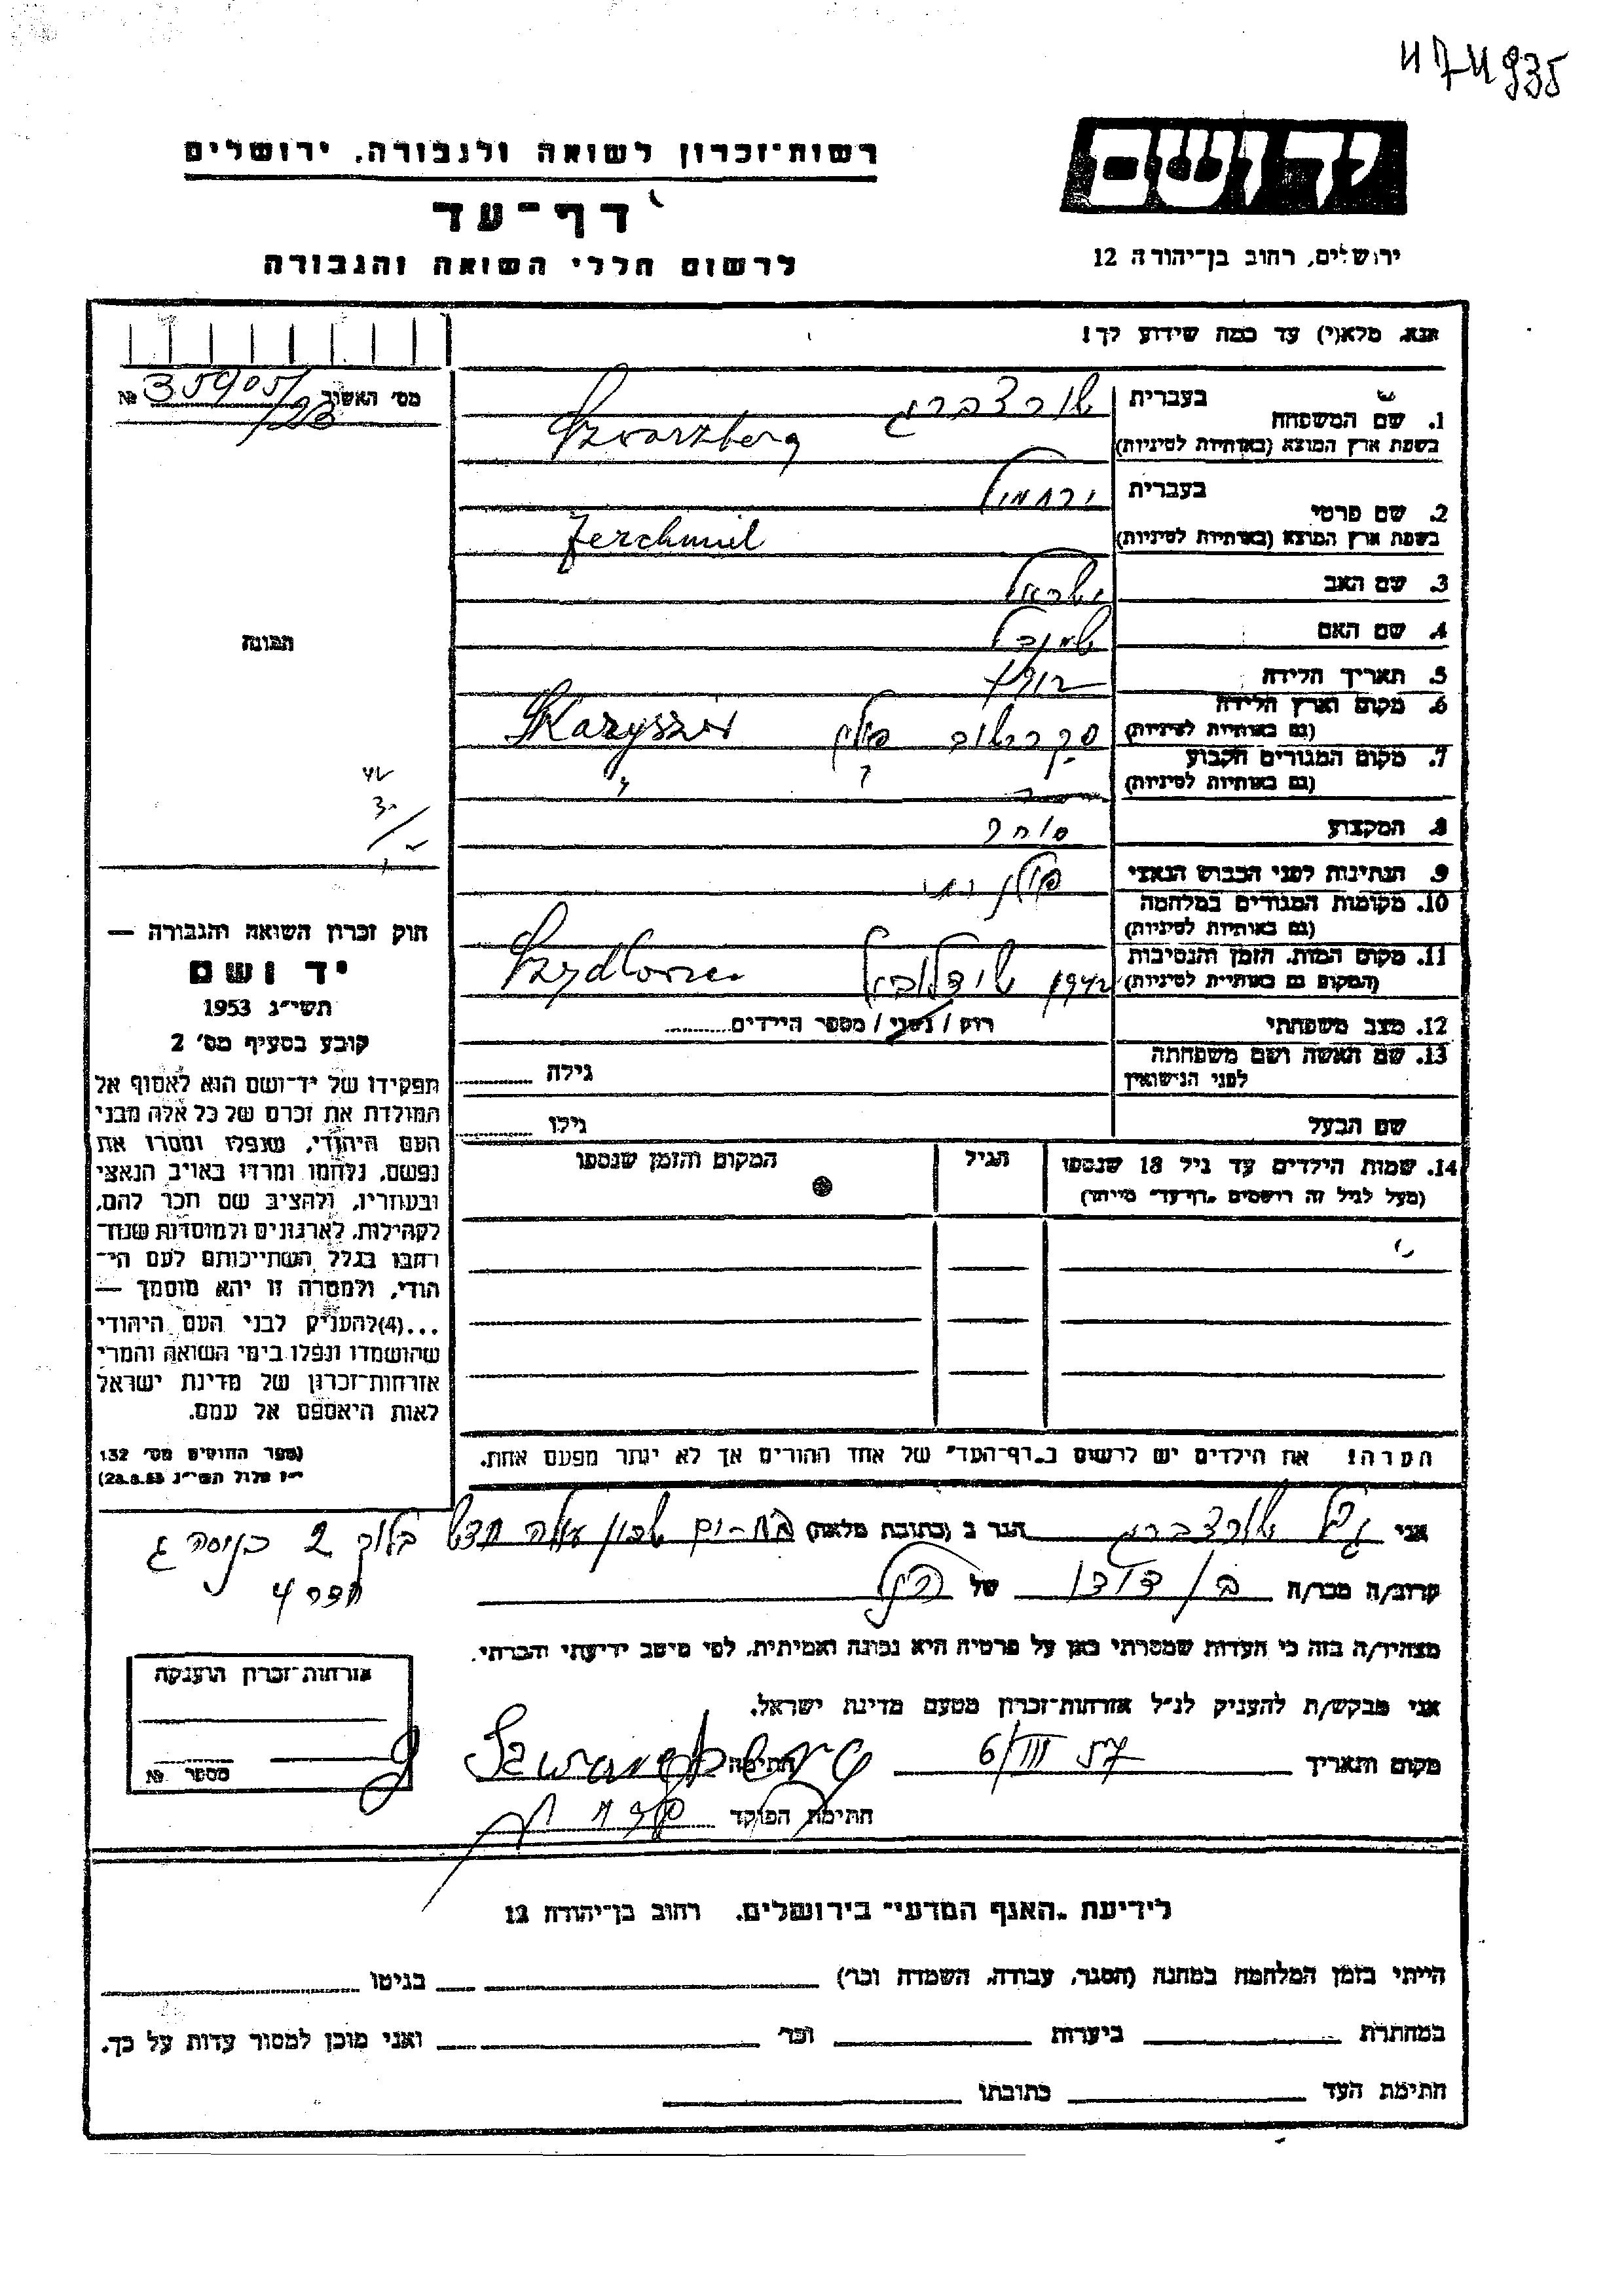 474935
יד ושם
רשות־זכרון לשואה ולגבורה, ירושלים
דף־עד
לרשום חללי השואה והגבורה
ירושלים, רחוב בן־יהודה 12
אנא, מלא(י) עד כמה שידוע לך!
מס' האשור № 35905/
1. שם המשפחה
בעברית שורצברג
בשפת ארץ המוצא (באותיות לטיניות) Szwarzberg
2. שם פרטי
בעברית ירחמיל
בשפת ארץ המוצא (באותיות לטיניות) Jerchmiel
3. שם האב ישראל
4. שם האם
5. תאריך הלידה
6. מקום וארץ הלידה
(גם באותיות לטיניות) פולין Skaryszów
7. מקום המגורים הקבוע
(גם באותיות לטיניות) " "
8. המקצוע סוחר
9. הנתינות לפני הכבוש הנאצי פולנית
10. מקומות המגורים במלחמה
(גם באותיות לטיניות)
11. מקום המות, הזמן והנסיבות
(המקום גם באותיות לטיניות) 1942 שידלוביץ
12. מצב משפחתי רווק / נשוי / מספר הילדים
13. שם האשה ושם משפחתה
לפני הנישואין גילה
שם הבעל גילו
14. שמות הילדים עד גיל 18 שנספו
(מעל לגיל זה רושמים „דף־עד" מיוחד)
הגיל
המקום והזמן שנספו
הערה! את הילדים יש לרשום ב„דף־העד" של אחד ההורים אך לא יותר מפעם אחת.
תמונה
חוק זכרון השואה והגבורה —
יד ושם
תשי"ג 1953
קובע בסעיף מס' 2
תפקידו של יד־ושם הוא לאסוף אל
המולדת את זכרם של כל אלה מבני
העם היהודי, שנפלו ומסרו את
נפשם, נלחמו ומרדו באויב הנאצי
ובעוזריו, ולהציב שם וזכר להם,
לקהילות, לארגונים ולמוסדות שנח־
רבו בגלל השתייכותם לעם הי־
הודי, ולמטרה זו יהא מוסמך —
...(4)להעניק לבני העם היהודי
שהושמדו ונפלו בימי השואה והמרי
אזרחות־זכרון של מדינת ישראל
לאות היאספם אל עמם.
(ספר החוקים מס' 132
י"ז אלול תשי"ג 28.8.53)
אני שורצברג הגר ב (כתובת מלאה) בת־ים שכון עולה חדש בלוק 2 כניסה ג
חדר 4
קרוב/ה מכר/ה בן דודו של הנ"ל
מצהיר/ה בזה כי העדות שמסרתי כאן על פרטיה היא נכונה ואמיתית, לפי מיטב ידיעתי והכרתי.
אני מבקש/ת להעניק לנ"ל אזרחות־זכרון מטעם מדינת ישראל.
מקום ותאריך 6/III 57 חתימה
חתימת הפוקד
אזרחות־זכרון הוענקה
מספר №
לידיעת „האגף המדעי" בירושלים, רחוב בן־יהודה 12
הייתי בזמן המלחמה במחנה (הסגר, עבודה, השמדה וכו') בגיטו
במחתרת ביערות וכו' ואני מוכן למסור עדות על כך.
חתימת העד כתובתו